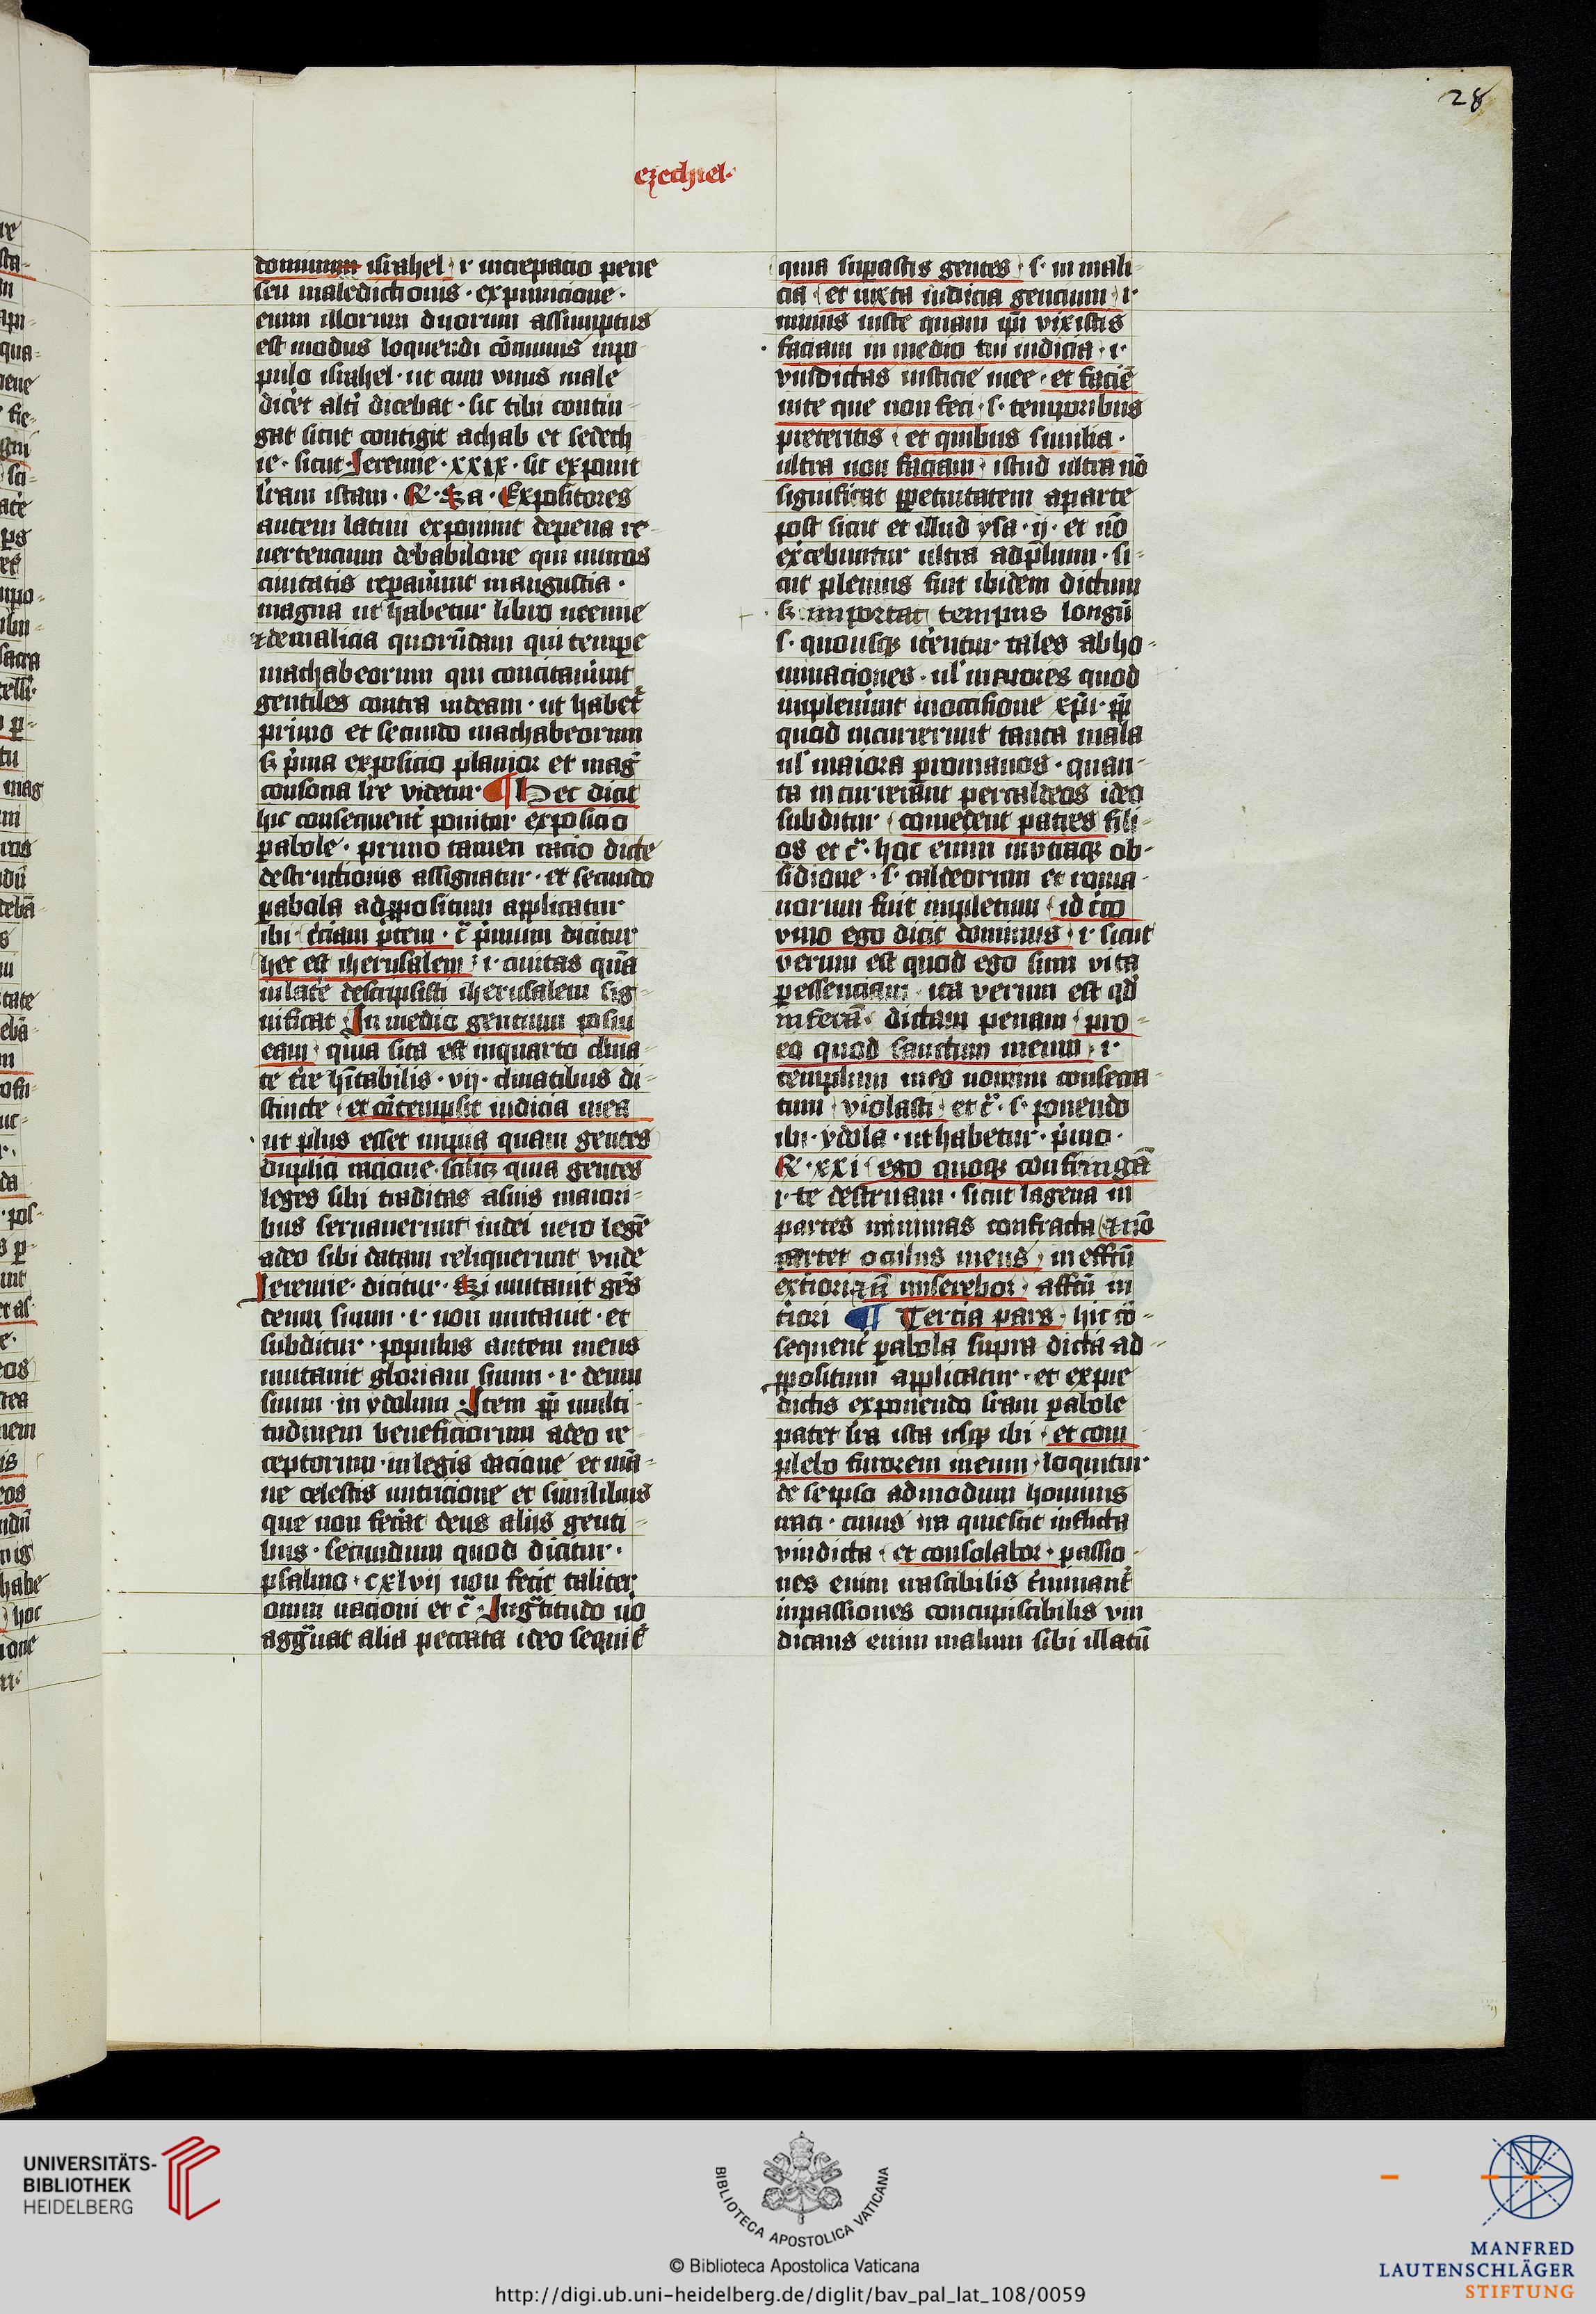 28
ezechiel·
domum israhel · i· increpacio pene
seu maledictionis · expunicione ·
enim illorum duorum assumptus
est modus loquendi cōmunis inpo
pulo israhel · ut cum vnus male
dic̄et alti dicebat · sic tibi contin
gat sicut contigit achab et sedech
ie · sicut Jeremie · xxix · sic exponit
lr̄am istam · R · Sa · Expositores
autem latini exponunt depena re
uertencium debabilone qui muros
ciuitatis repau̇unt inangustia ·
magna ut habetur libro neemie
⁊demalicia quorūdam qui tempe
machabeorum qui concitau̇unt
gentiles contra iudeam · ut habet̄
primo et secundo machabeorum
sꝫ p̄ma exposicio planior et maḡ
consona lr̄e videtur ¶ Hec dicit
hic consequent̄ ponitur exposicio
ꝑabole · primo tamen racio dicte
destructionis assignatur · et secundo
ꝑabola adꝓpositum applicatur
ibi · t̄ciam ꝑtem · c̄ p̄mum dicitur
hec est iherusalem · i· ciuitas quā
inlat̄e descripsisti iherusalem sig
nificat · In medio gencium posui
eam · quia sita est inquarto clima
te t̄re hītabilis · vij · climatibus di
stincte · et cōtempsit iudicia mea
ut plus esset impia quam gentes
duplici racione · scilicꝫ quia gentes
leges sibi traditas asuis maiori
bus seruauerunt iudei uero legē
adeo sibi datam reliquerunt vnde
Jeremie · dicitur · Si mutauit gēs
deum suum · i · non mutauit · et
subditur · populus autem meus
mutauit gloriam suam · i · deum
suum · in ydolum · Item ꝓpt̄ multi
tudinem beneficiorum adeo re
ceptorum · inlegis dacione et mā
ne celestis nutricione et similibus
que non fec̄at deus alijs genti
bus · secundum quod dicitur ·
psalmo · cxlvij non fecit taliter
omni nacioni et c̄ · Ingr̄atitudo uō
aggr̄uat alia peccata ideo sequit̄
quia suꝑastis gentes · s · in mali
cia · et iuxta iudicia gencium · i ·
minus iuste quam ip̄i vixistis
faciam in medio tui iudicia · i ·
vindictas iusticie mee · et faciē
inte que non feci · s · temporibus
preteritis · et quibus similia ·
ultra non faciam · istud ultra nō
significat ꝑpetuitatem aparte
post sicut et illud ysa · ij · et nō
ex̄cebuntur ultra adp̄lium · si
cut plenius fuit ibidem dictum
sꝫ importat tempus longū
s · quousqꝫ it̄entur · tales abho
minaciones · ul maiores quod
impleuu̇nt inoccisione xp̄i · ꝓpt̄
quod incurrerunt tanta mala
ul maiora ꝑromanos · quan
ta incurrerant percaldeos ideo
subditur · comedent patres fili
os et c̄ · hoc enim inutraqꝫ ob
sidione · s · caldeorum et roma
norum fuit impletum · id c̄co
viuo ego dicit dominus · i · sicut
verum est quod ego sum vita
ꝑessenciam · ita verum est qd̄
inferā · dictam penam · pro
eo quod sanctum meum · i ·
templum meo nomini consecra
tum · violasti · et c̄ · s · ponendo
ibi · ydola · ut habetur · p̄mo ·
R · xxi · ego quoqꝫ confringā
i · te destruam · sicut lagena in
partes minimas confracta · ⁊nō
parcet oculus meus · in effc̄u
ext̄iori ⁊n̄ miserebor · affc̄u in
t̄iori ¶ Tercia pars · hic cō
sequent̄ ꝑabola supra dicta ad
ꝓpositum applicatur · et ex pre
dictis exponendo lr̄am ꝑabole
patet lr̄a ista usqꝫ ibi · et com
plebo furorem meum · loquitur
de seipso admodum hominis
irati · cuius ira quiescit inflicta
vindicta · et consolabor · passio
nes enim irascibilis t̄minant̄
inpassiones concupiscibilis vin
dicans enim malum sibi illatū
UNIVERSITÄTS-
BIBLIOTHEK
HEIDELBERG
BIBLIOTECA APOSTOLICA VATICANA
© Biblioteca Apostolica Vaticana
http://digi.ub.uni-heidelberg.de/diglit/bav_pal_lat_108/0059
MANFRED
LAUTENSCHLÄGER
STIFTUNG